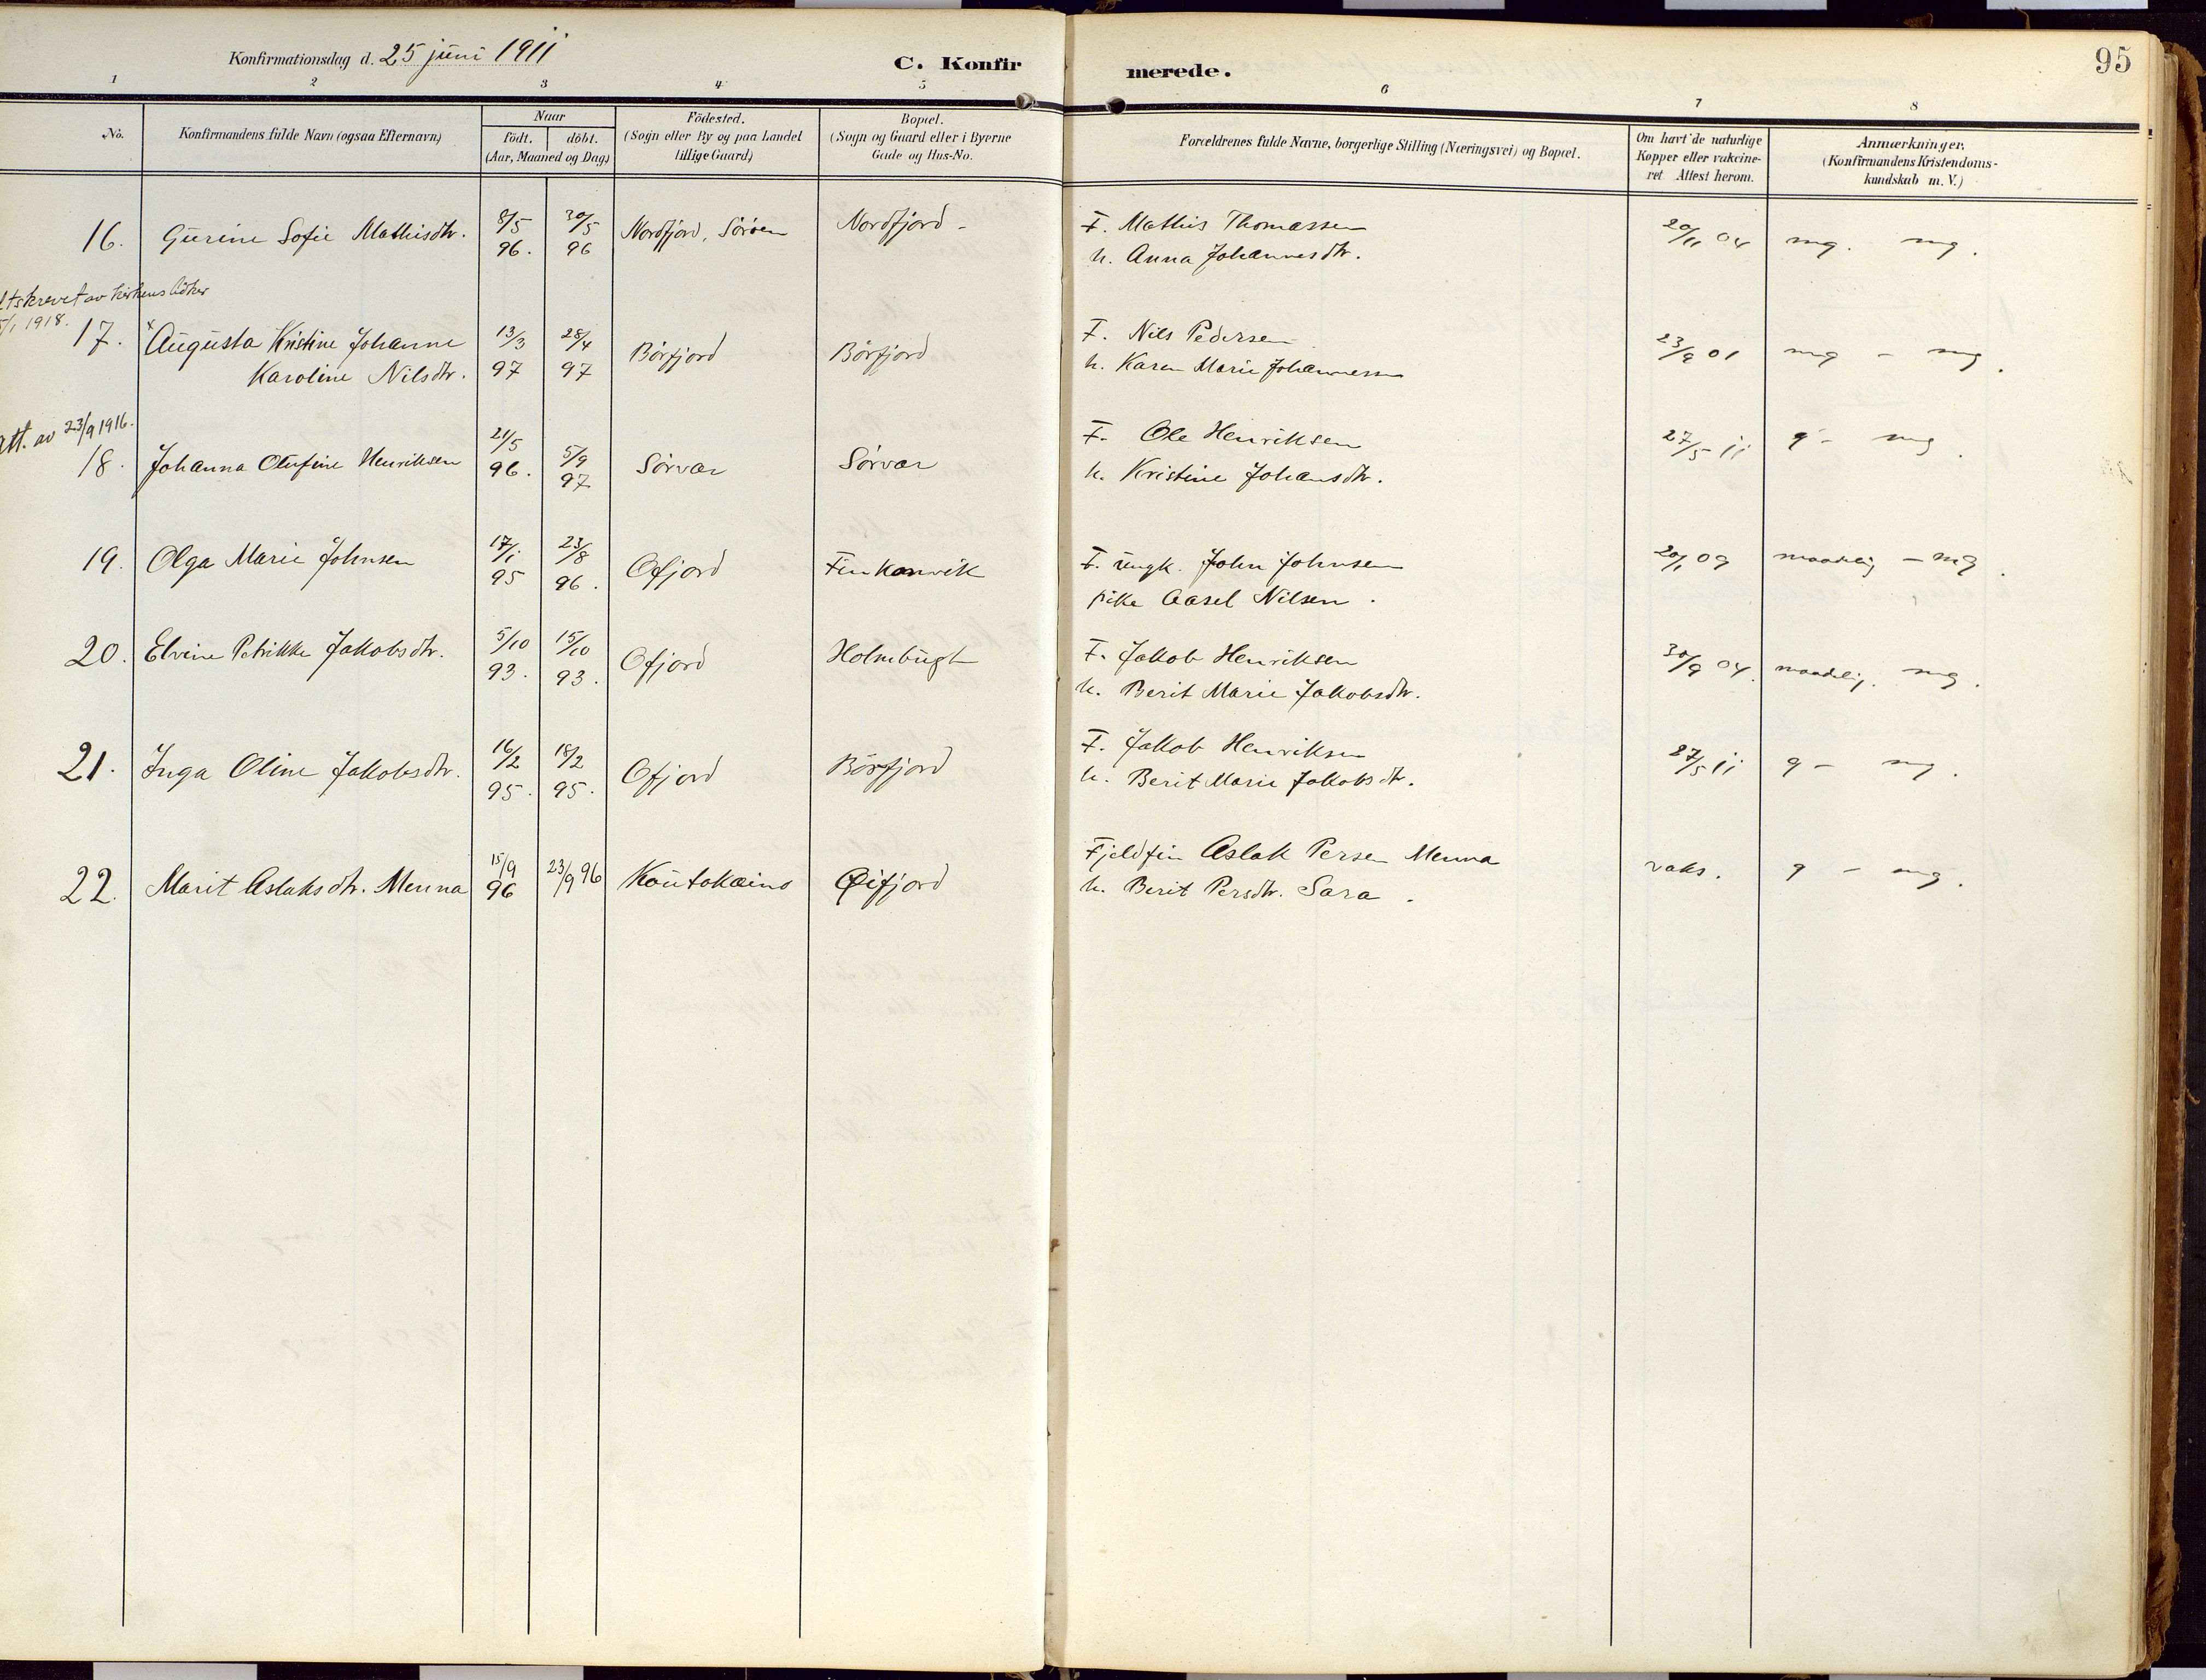 Konfirmationsdag d. 25 juni 1911
C. Konfirmerede.
95
1 2 3 4 5 6 7 8
No.
Konfirmandens fulde Navn (ogsaa Efternavn)
Naar
födt. döbt.
(Aar, Maaned og Dag)
Födested.
(Sogn eller By og paa Landet
tillige Gaard)
Bopæl.
(Sogn og Gaard eller i Byerne
Gade og Hus-No.
Forældrenes fulde Navne, borgerlige Stilling (Næringsvei) og Bopæl.
Om havt de naturlige
Kopper eller vakcine-
ret Attest herom.
Anmærkninger.
(Konfirmandens Kristendoms-
kundskab m. V.)
16. Gurine Sofie Mathisdtr. 8/5 96. 30/5 96 Nordfjord, Söröen Nordfjord - F. Mathis Thomassen 20/11 04 mg. mg.
h. Anna Johannesdtr.
Utskrevet av kirkens böker
1918.
17. x Augusta Kristine Johanne 13/3 97 28/4 97 Börfjord Börfjord F. Nils Pedersen 23/9 01 mg - mg.
Karoline Nilsdtr. h. Karen Marie Johannessen
att. av 23/9 1916.
18. Johanna Olufine Henriksen 21/5 96. 5/9 97 Sörvær Sörvær F. Ole Henriksen 27/5 11 g - mg.
h. Kristine Johansdtr.
19. Olga Marie Johnsen 17/1 95 23/8 96. Ofjord Finkonvik F. ungk. John Johnsen 20/1 09 maadelig - mg.
pike Aasel Nilsen.
20. Elvine Petrikke Jakobsdtr. 5/10 93. 15/10 93. Ofjord Holmbugt F. Jakob Henriksen 30/9 04. maadelig. mg.
h. Berit Marie Jakobsdtr.
21. Inga Oline Jakobsdtr. 16/2 95. 18/2 95. Ofjord Börfjord F. Jakob Henriksen 27/5 11 g - mg.
h. Berit Marie Jakobsdtr.
22. Marit Aslaksdtr. Menna 15/9 96 23/9 96 Koutokæino Øifjord Fjeldfin Aslak Persen Menna vaks. g - mg.
h. Berit Persdtr. Sara.